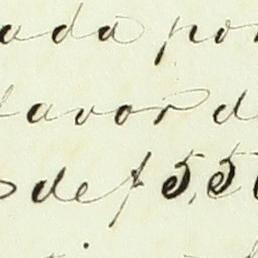 ada por
favor d
s de f 5,5